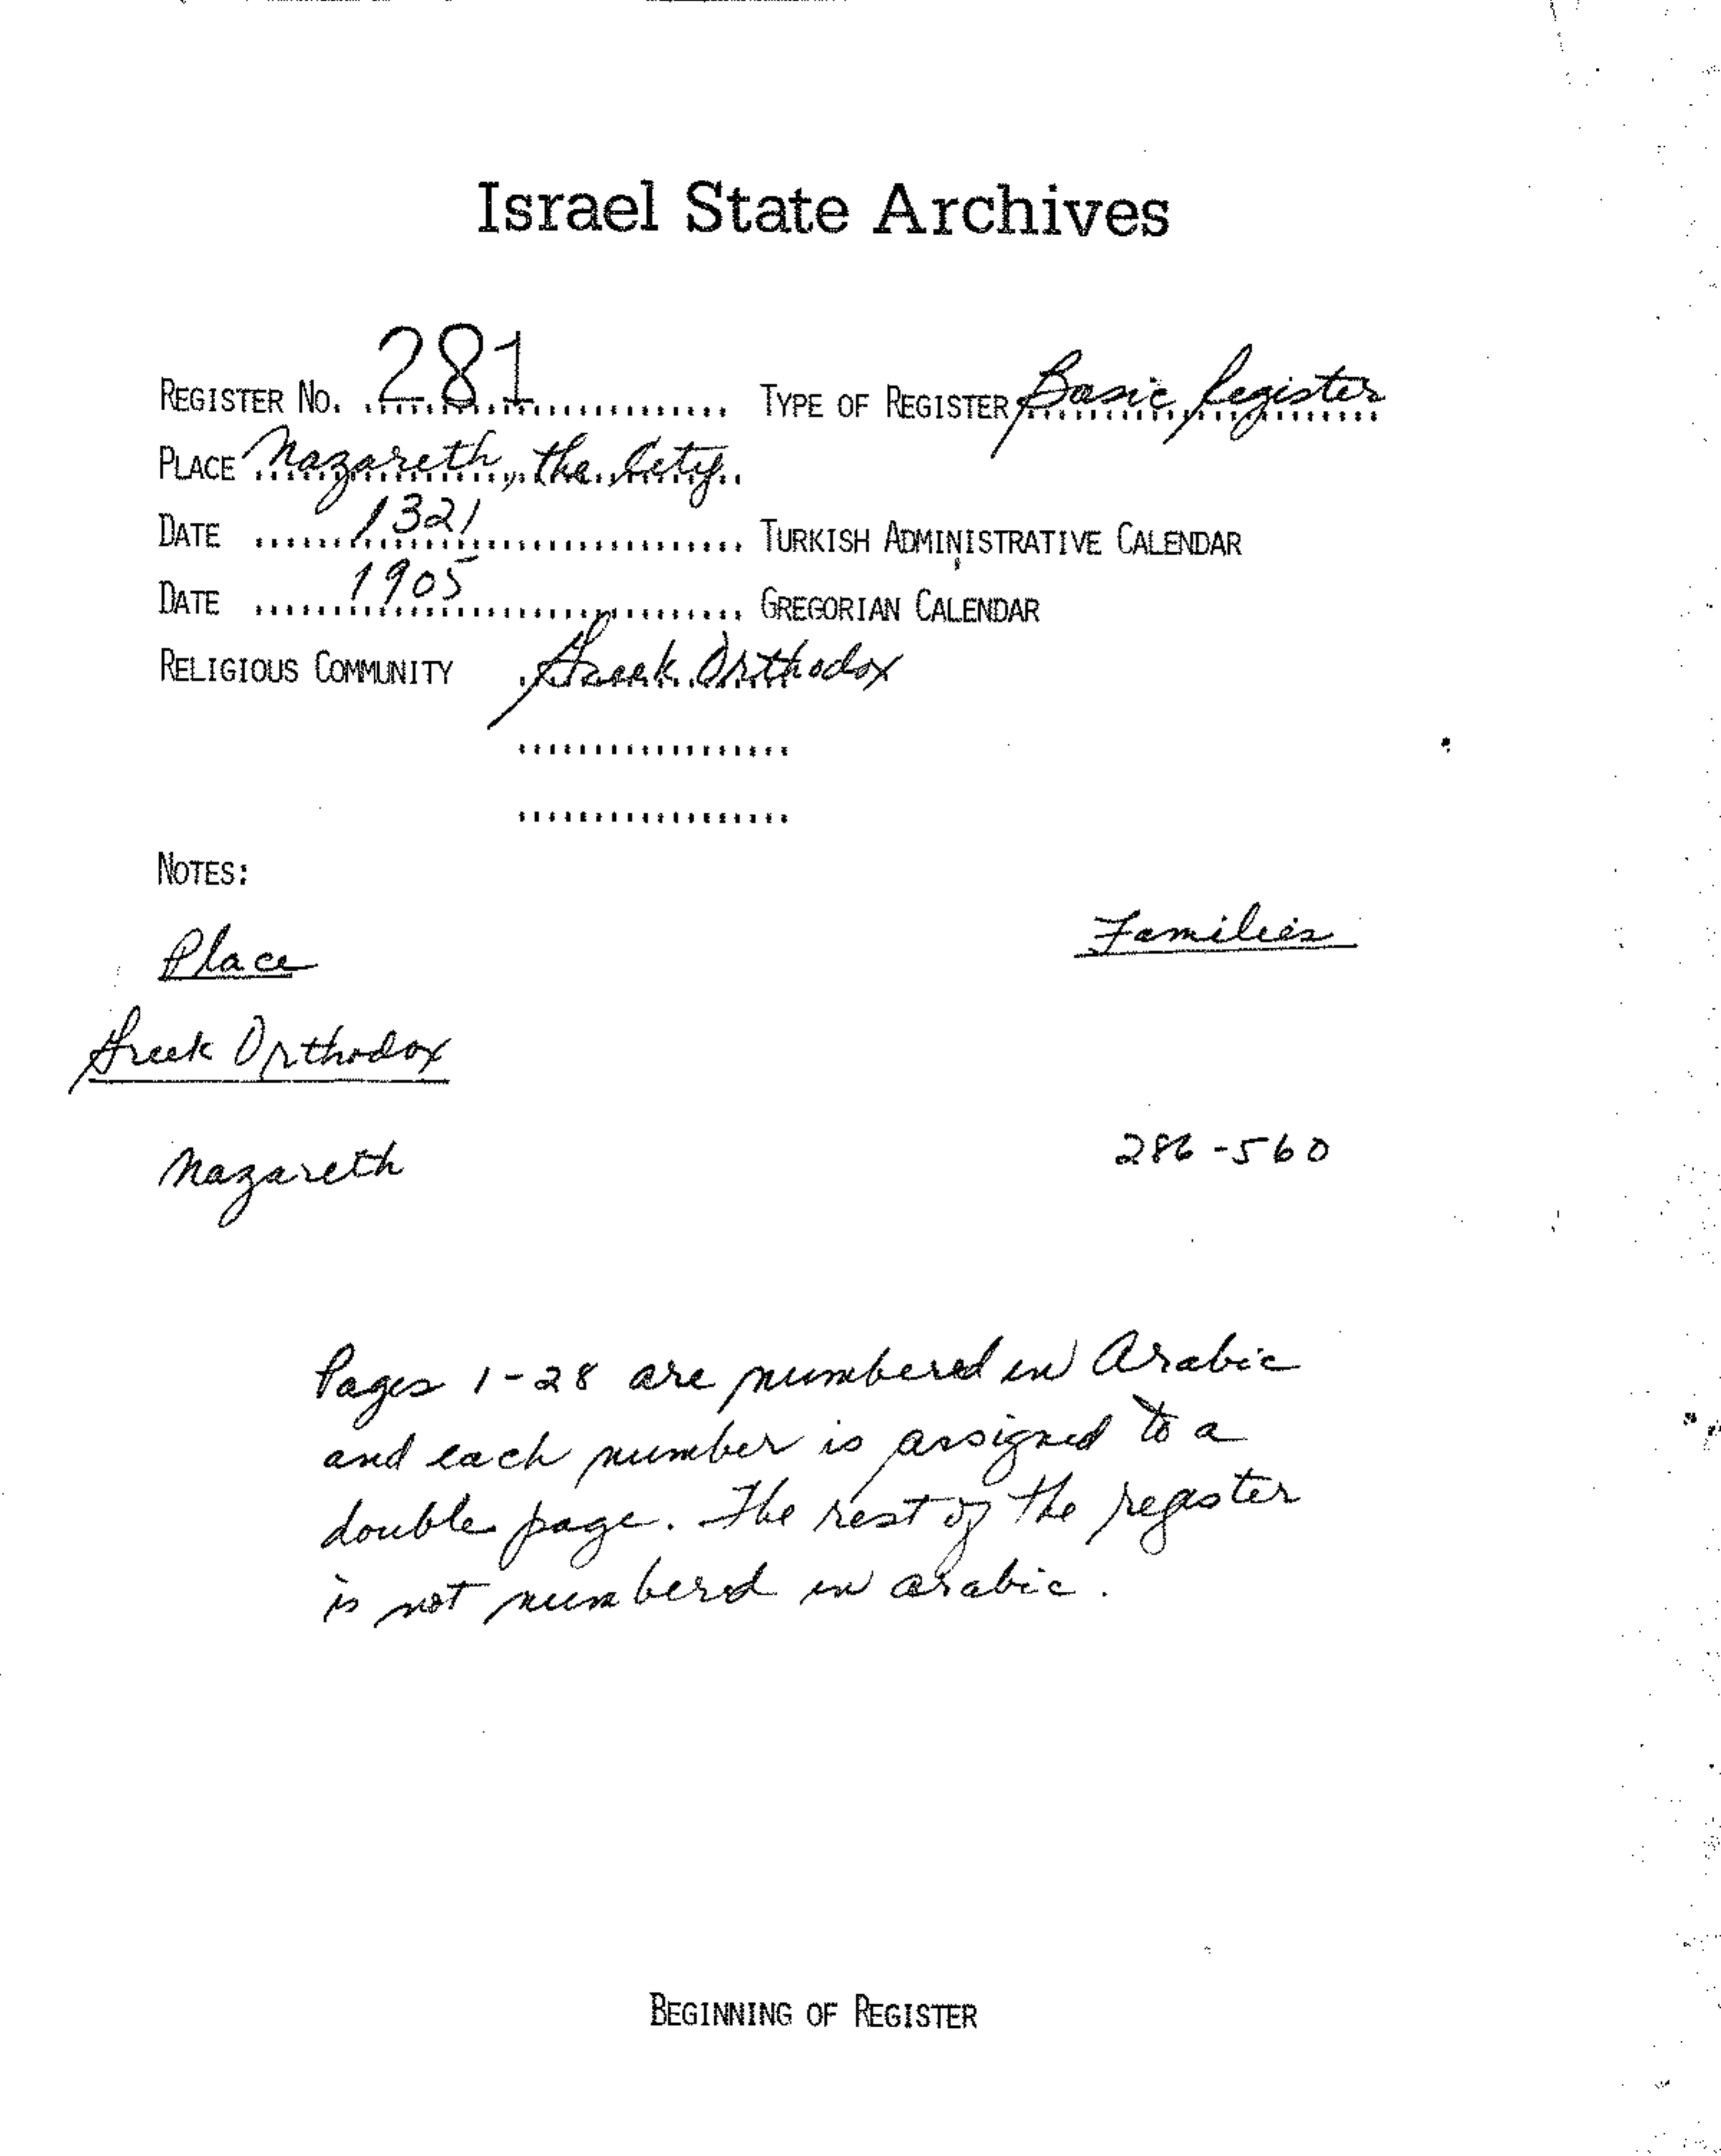 Israel State Archives
REGISTER NO. 281 TYPE OF REGISTER Basic Register
PLACE Nazareth, the City
DATE 1321 TURKISH ADMINISTRATIVE CALENDAR
DATE 1905 GREGORIAN CALENDAR
RELIGIOUS COMMUNITY Greek Orthodox
NOTES:
Place Families
Greek Orthodox
Nazareth 286-560
Pages 1-28 are numbered in Arabic
and each number is assigned to a
double page. The rest of the register
is not numbered in arabic.
BEGINNING OF REGISTER